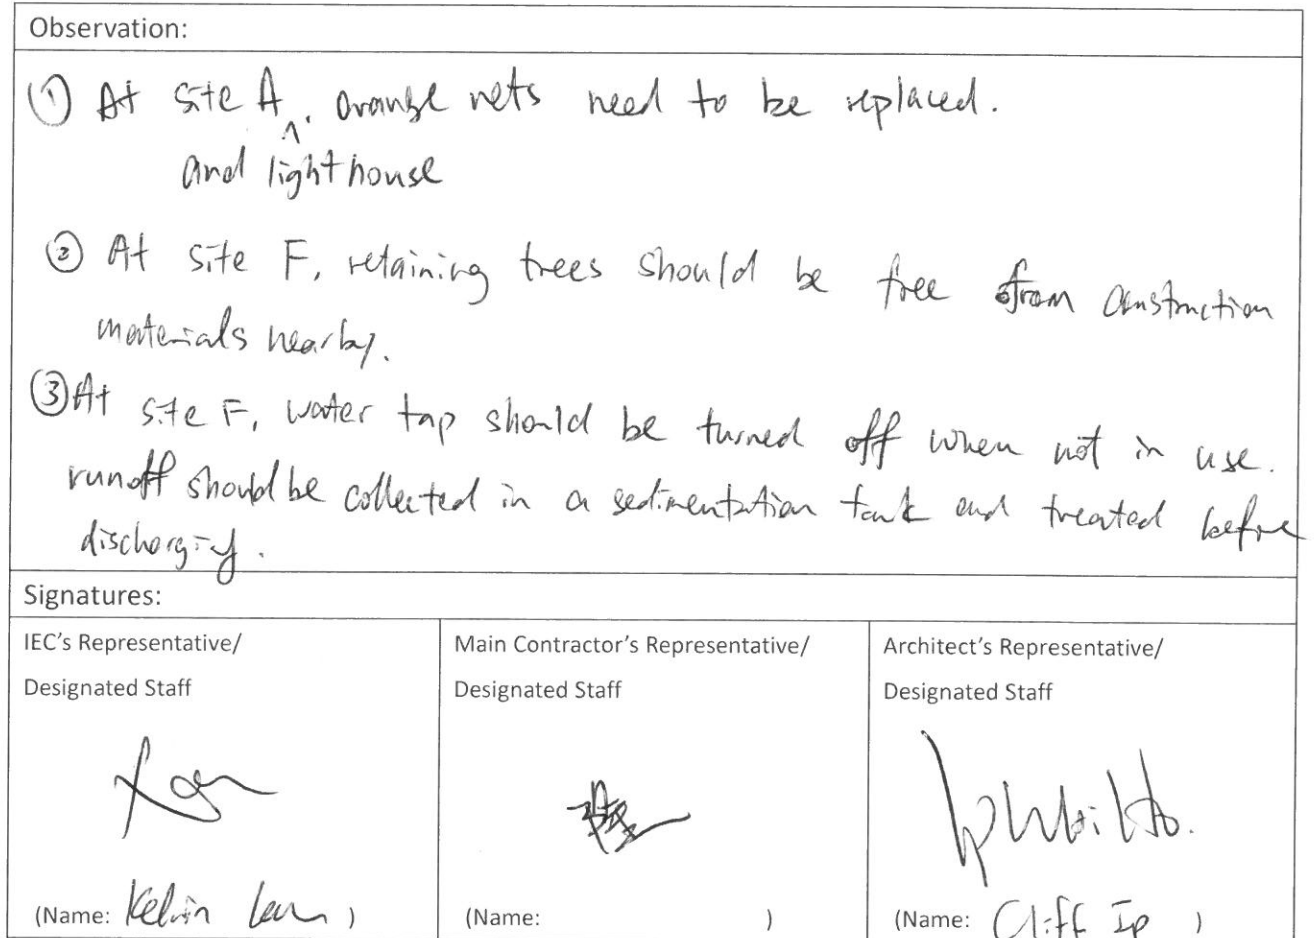 Observation:
① At site A ^, orange nets need to be replaced.
and lighthouse
② At site F, retaining trees should be free from construction
materials nearby.
③ At site F, water tap should be turned off when not in use.
runoff should be collected in a sedimentation tank and treated before
discharging.
Signatures:
IEC's Representative/
Designated Staff
Main Contractor's Representative/
Designated Staff
Architect's Representative/
Designated Staff
(Name: Kelvin )
(Name: )
(Name: Cliff Ip )